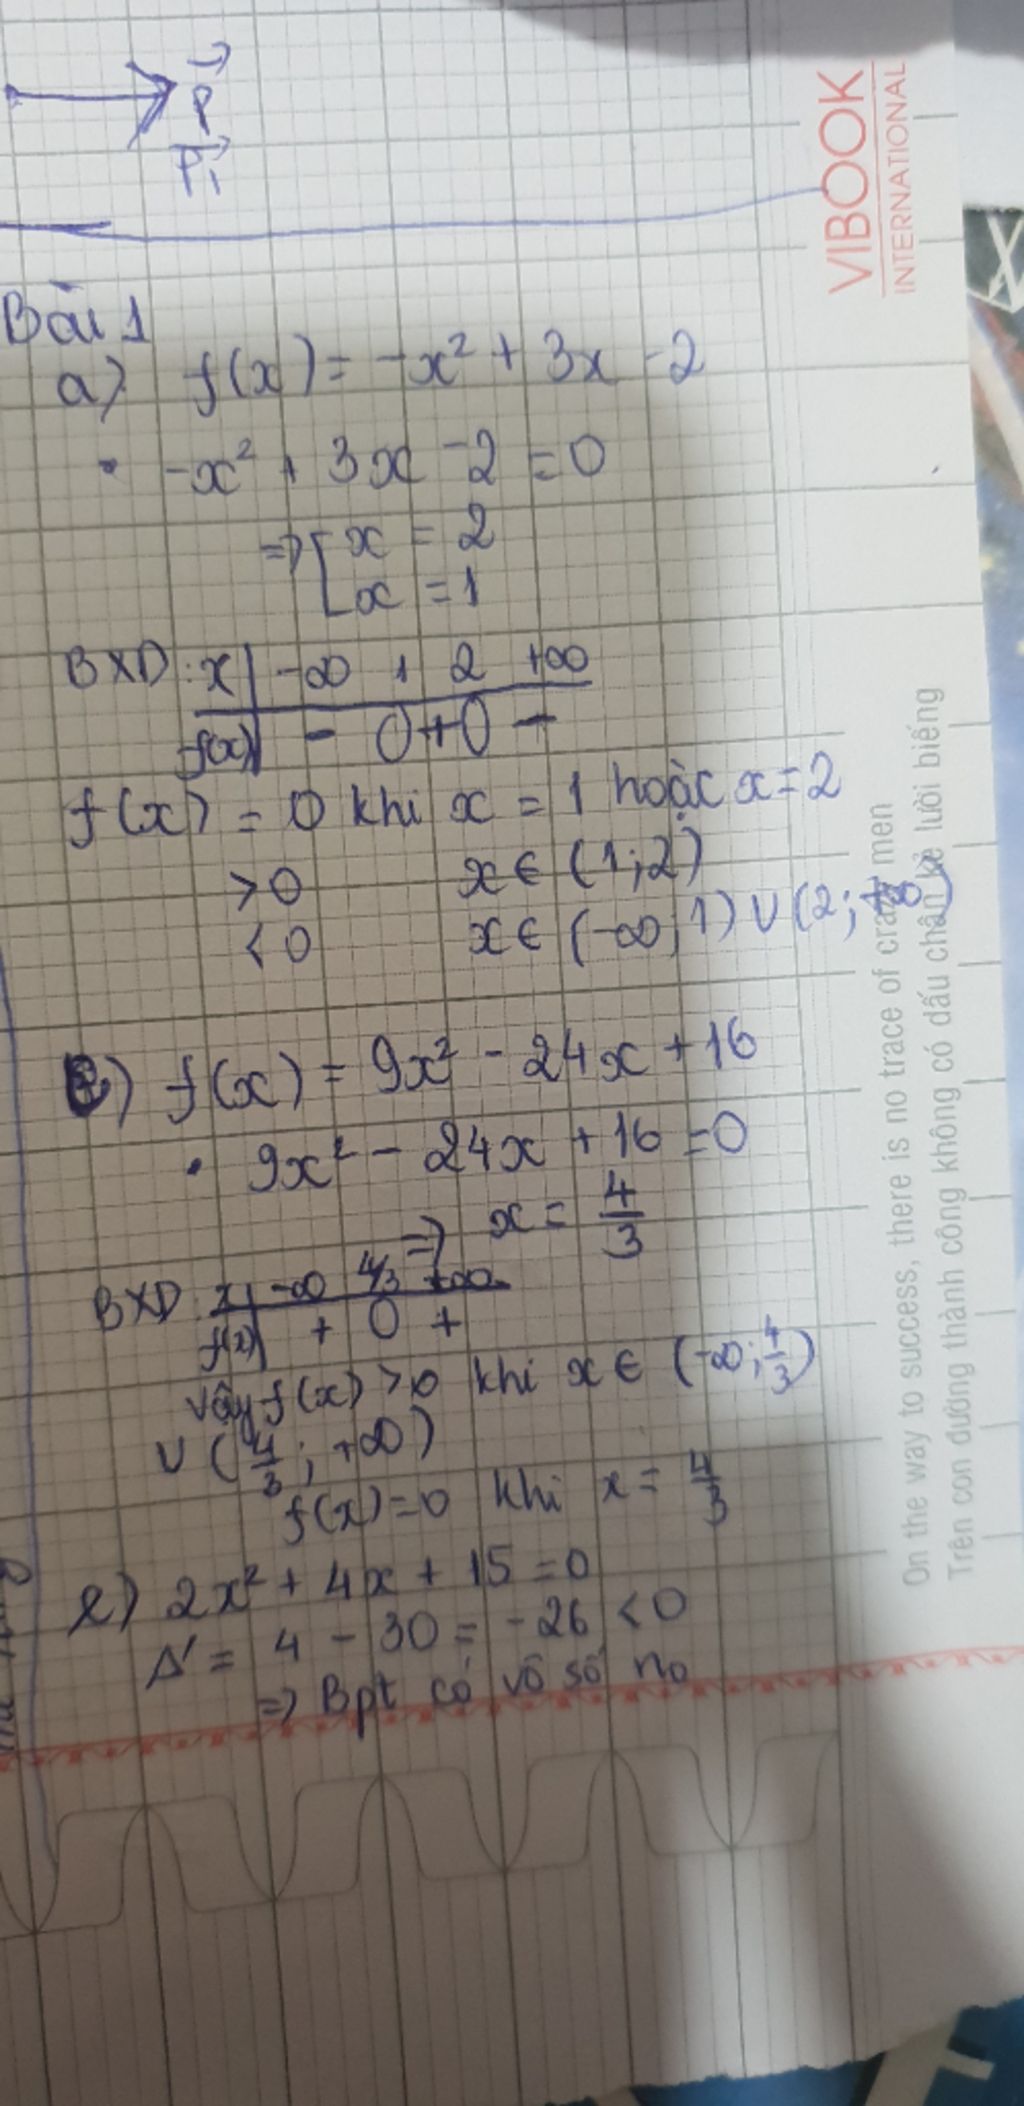 P
P₁
VIBOOK
INTERNATIONAL
Bài 1
a) f(x) = -x² + 3x - 2
• -x² + 3x - 2 = 0
=> [ x = 2
x = 1
BXD: x | -∞ 1 2 +∞
f(x) | - 0 + 0 -
f(x) = 0 khi x = 1 hoặc x = 2
> 0 x ∈ (1;2)
< 0 x ∈ (-∞; 1) ∪ (2; +∞)
) f(x) = 9x² - 24x + 16
• 9x² - 24x + 16 = 0
=> x = 4/3
BXD: x | -∞ 4/3 +∞
f(x) | + 0 +
Vậy f(x) > 0 khi x ∈ (-∞; 4/3)
∪ (4/3; +∞)
f(x) = 0 khi x = 4/3
e) 2x² + 4x + 15 = 0
Δ' = 4 - 30 = -26 < 0
=> Bpt có vô số no
On the way to success, there is no trace of crazy men
Trên con đường thành công không có dấu chân kẻ lười biếng